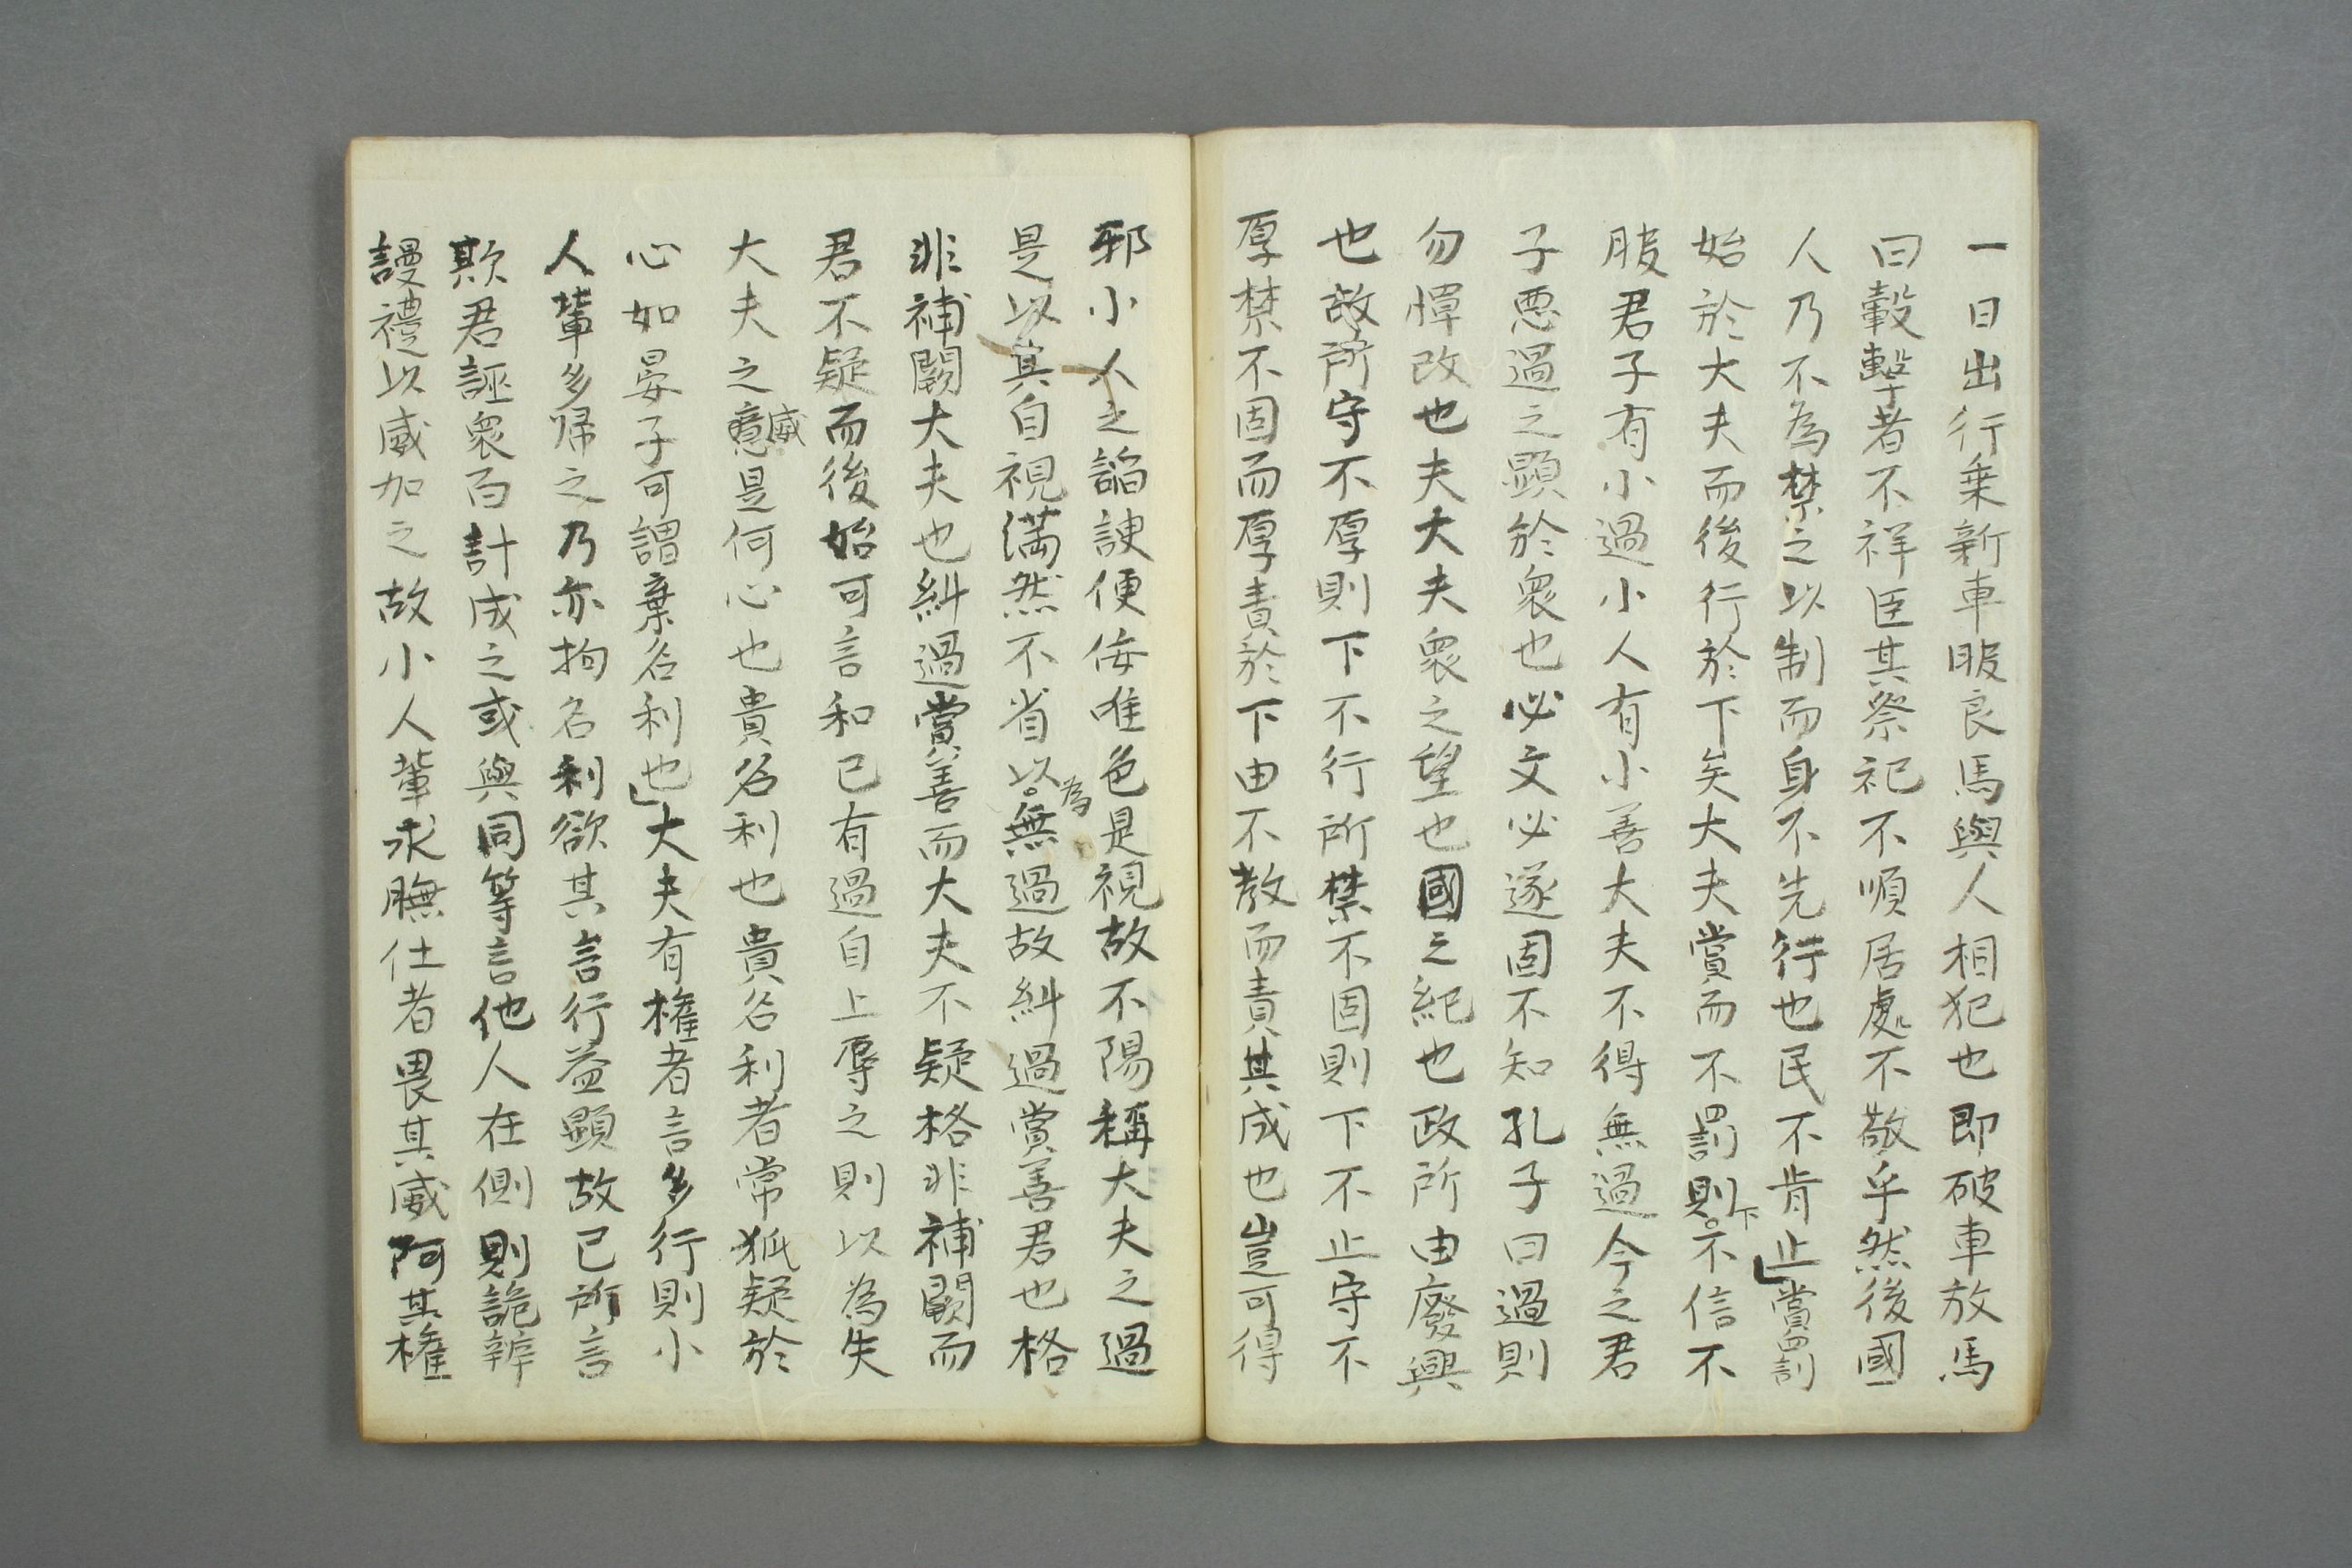 一日出行乗新車服良馬與人相犯也即破車放馬
曰轂擊者不祥臣其祭祀不順居處不敬乎然後國
人乃不為禁之以制而身不先行也民不肯止賞罰
始於大夫而後行於下矣大夫賞而不罰則下不信不
服君子有小過小人有小善大夫不得無過今之君
子悪過之顕於衆也必文必遂固不知孔子曰過則
勿憚改也夫大夫衆之望也國之紀也政所由廢興
也故所守不厚則下不行所禁不固則下不止守不
厚禁不固而厚責於下由不教而責其成也豈可得
邪小人之諂諛便佞唯色是視故不陽稱大夫之過
是以其自視満然不省以為無過故糾過賞善君也格
非補闕大夫也糾過賞善而大夫不疑格非補闕而
君不疑而後始可言和已有過自上辱之則以為失
大夫之威意是何心也貴名利也貴名利者常狐疑於
心如晏子可謂棄名利也大夫有権者言多行則小
人輩多帰之乃亦拘名利欲其言行益顕故已所言
欺君誣衆百計成之或與同等言他人在側則詭辨
謾禮以威加之故小人輩求膴仕者畏其威阿其権